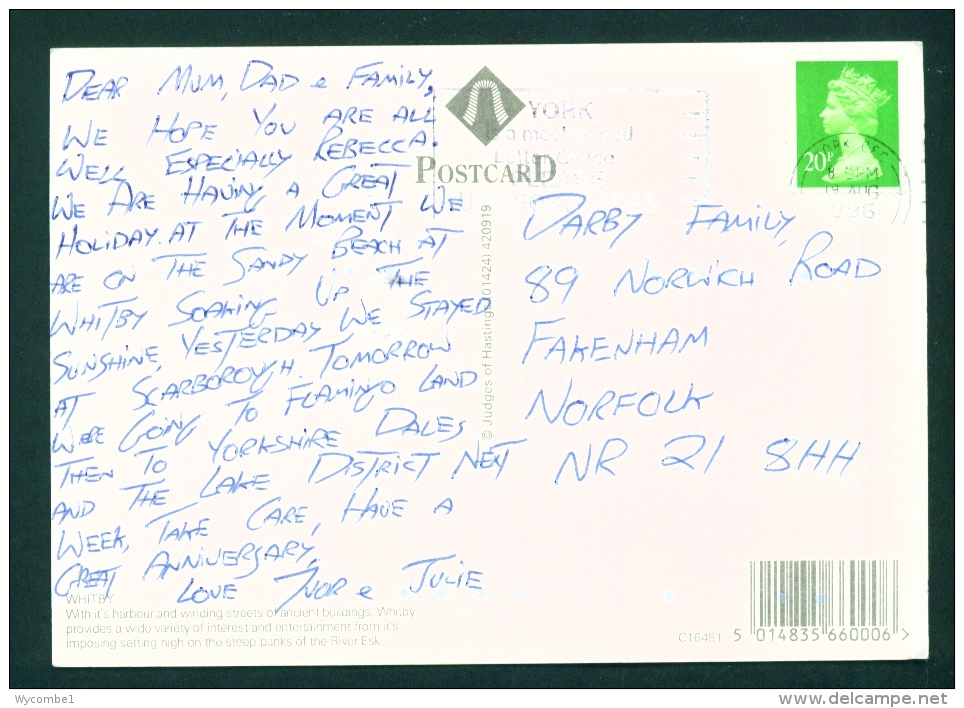 DEAR MUM, DAD & FAMILY,
WE HOPE YOU ARE ALL
WELL ESPECIALLY REBECCA.
WE ARE HAVING A GREAT
HOLIDAY. AT THE MOMENT WE
ARE ON THE SANDY BEACH AT
WHITBY SOAKING UP THE
SUNSHINE, YESTERDAY WE STAYED
AT SCARBOROUGH. TOMORROW
WERE GOING TO FLAMINGO LAND
THEN TO YORKSHIRE DALES
AND THE LAKE DISTRICT NEXT
WEEK, TAKE CARE, HAVE A
GREAT ANNIVERSARY,
LOVE & JULIE
WHITBY
With it's harbour and winding streets of ancient buildings, Whitby
provides a wide variety of interest and entertainment from it's
imposing setting high on the steep banks of the River Esk.
POSTCARD
© Judges of Hastings (01424) 420919
YORK
is a mechanised
Letter Office
20P
8 PM
19 AUG
1996
DARBY FAMILY,
89 NORWICH ROAD
FAKENHAM
NORFOLK
NR 21 8HH
C16481
5 014835 660006 >
Wycombe1
www.delcampe.net